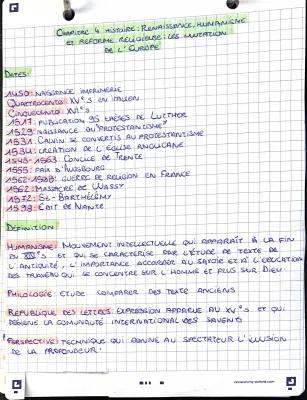 CHAPITRE 4 HISTOIRE : RENAISSANCE, HUMANISME
ET REFORME RELIGIEUSE : LES MUTATION
DE L'EUROPE
DATES :
1450 : NAISSANCE IMPRIMERIE
QUATTROCENTO : XV°s EN ITALIEN
CINQUECENTO : XVI°s
1517 : PUBLICATION 95 THÈSES DE LUTHER
1529 : NAISSANCE DU "PROTESTANTISME"
CALVIN SE CONVERTIS AU PROTESTANTISME
1534 : CREATION DE L'ÉGLISE ANGLICANE
1545-1563 : CONCILE DE TRENTE
1555 : PAIX D'AUGSBOURG
1562-1598 : GUERRE DE RELIGION EN FRANCE
1562 : MASSACRE DE WASSY
1572 : ST-BARTHÉLEMY
1598 : ÉDIT DE NANTE
DÉFINITION :
HUMANISME : MOUVEMENT INTELLECTUELLE QUI APPARAIT À LA FIN
DU XIV°s ET QUI SE CARACTÉRISE PAR L'ÉTUDE DE TEXTE DE
L'ANTIQUITÉ, L'IMPORTANCE ACCORDER AU SAVOIR ET À L'ÉDUCATION
DES TRAVEAU QUI SE CONCENTRE SUR L'HOMME ET PLUS SUR DIEU
PHILOLOGIE : ETUDE COMPARER DES TEXTE ANCIENS
REPUBLIQUE DES LETTRES : EXPRESSION APPARUE AU XV°s ET QUI
DÉSIGNE LA COMUNAUTÉ INTERNATIONAL DES SAVENTS
PERSPECTIVE : TECHNIQUE QUI DONNE AU SPECTATEUR L'ILLUSION
DE LA PROFONDEUR.